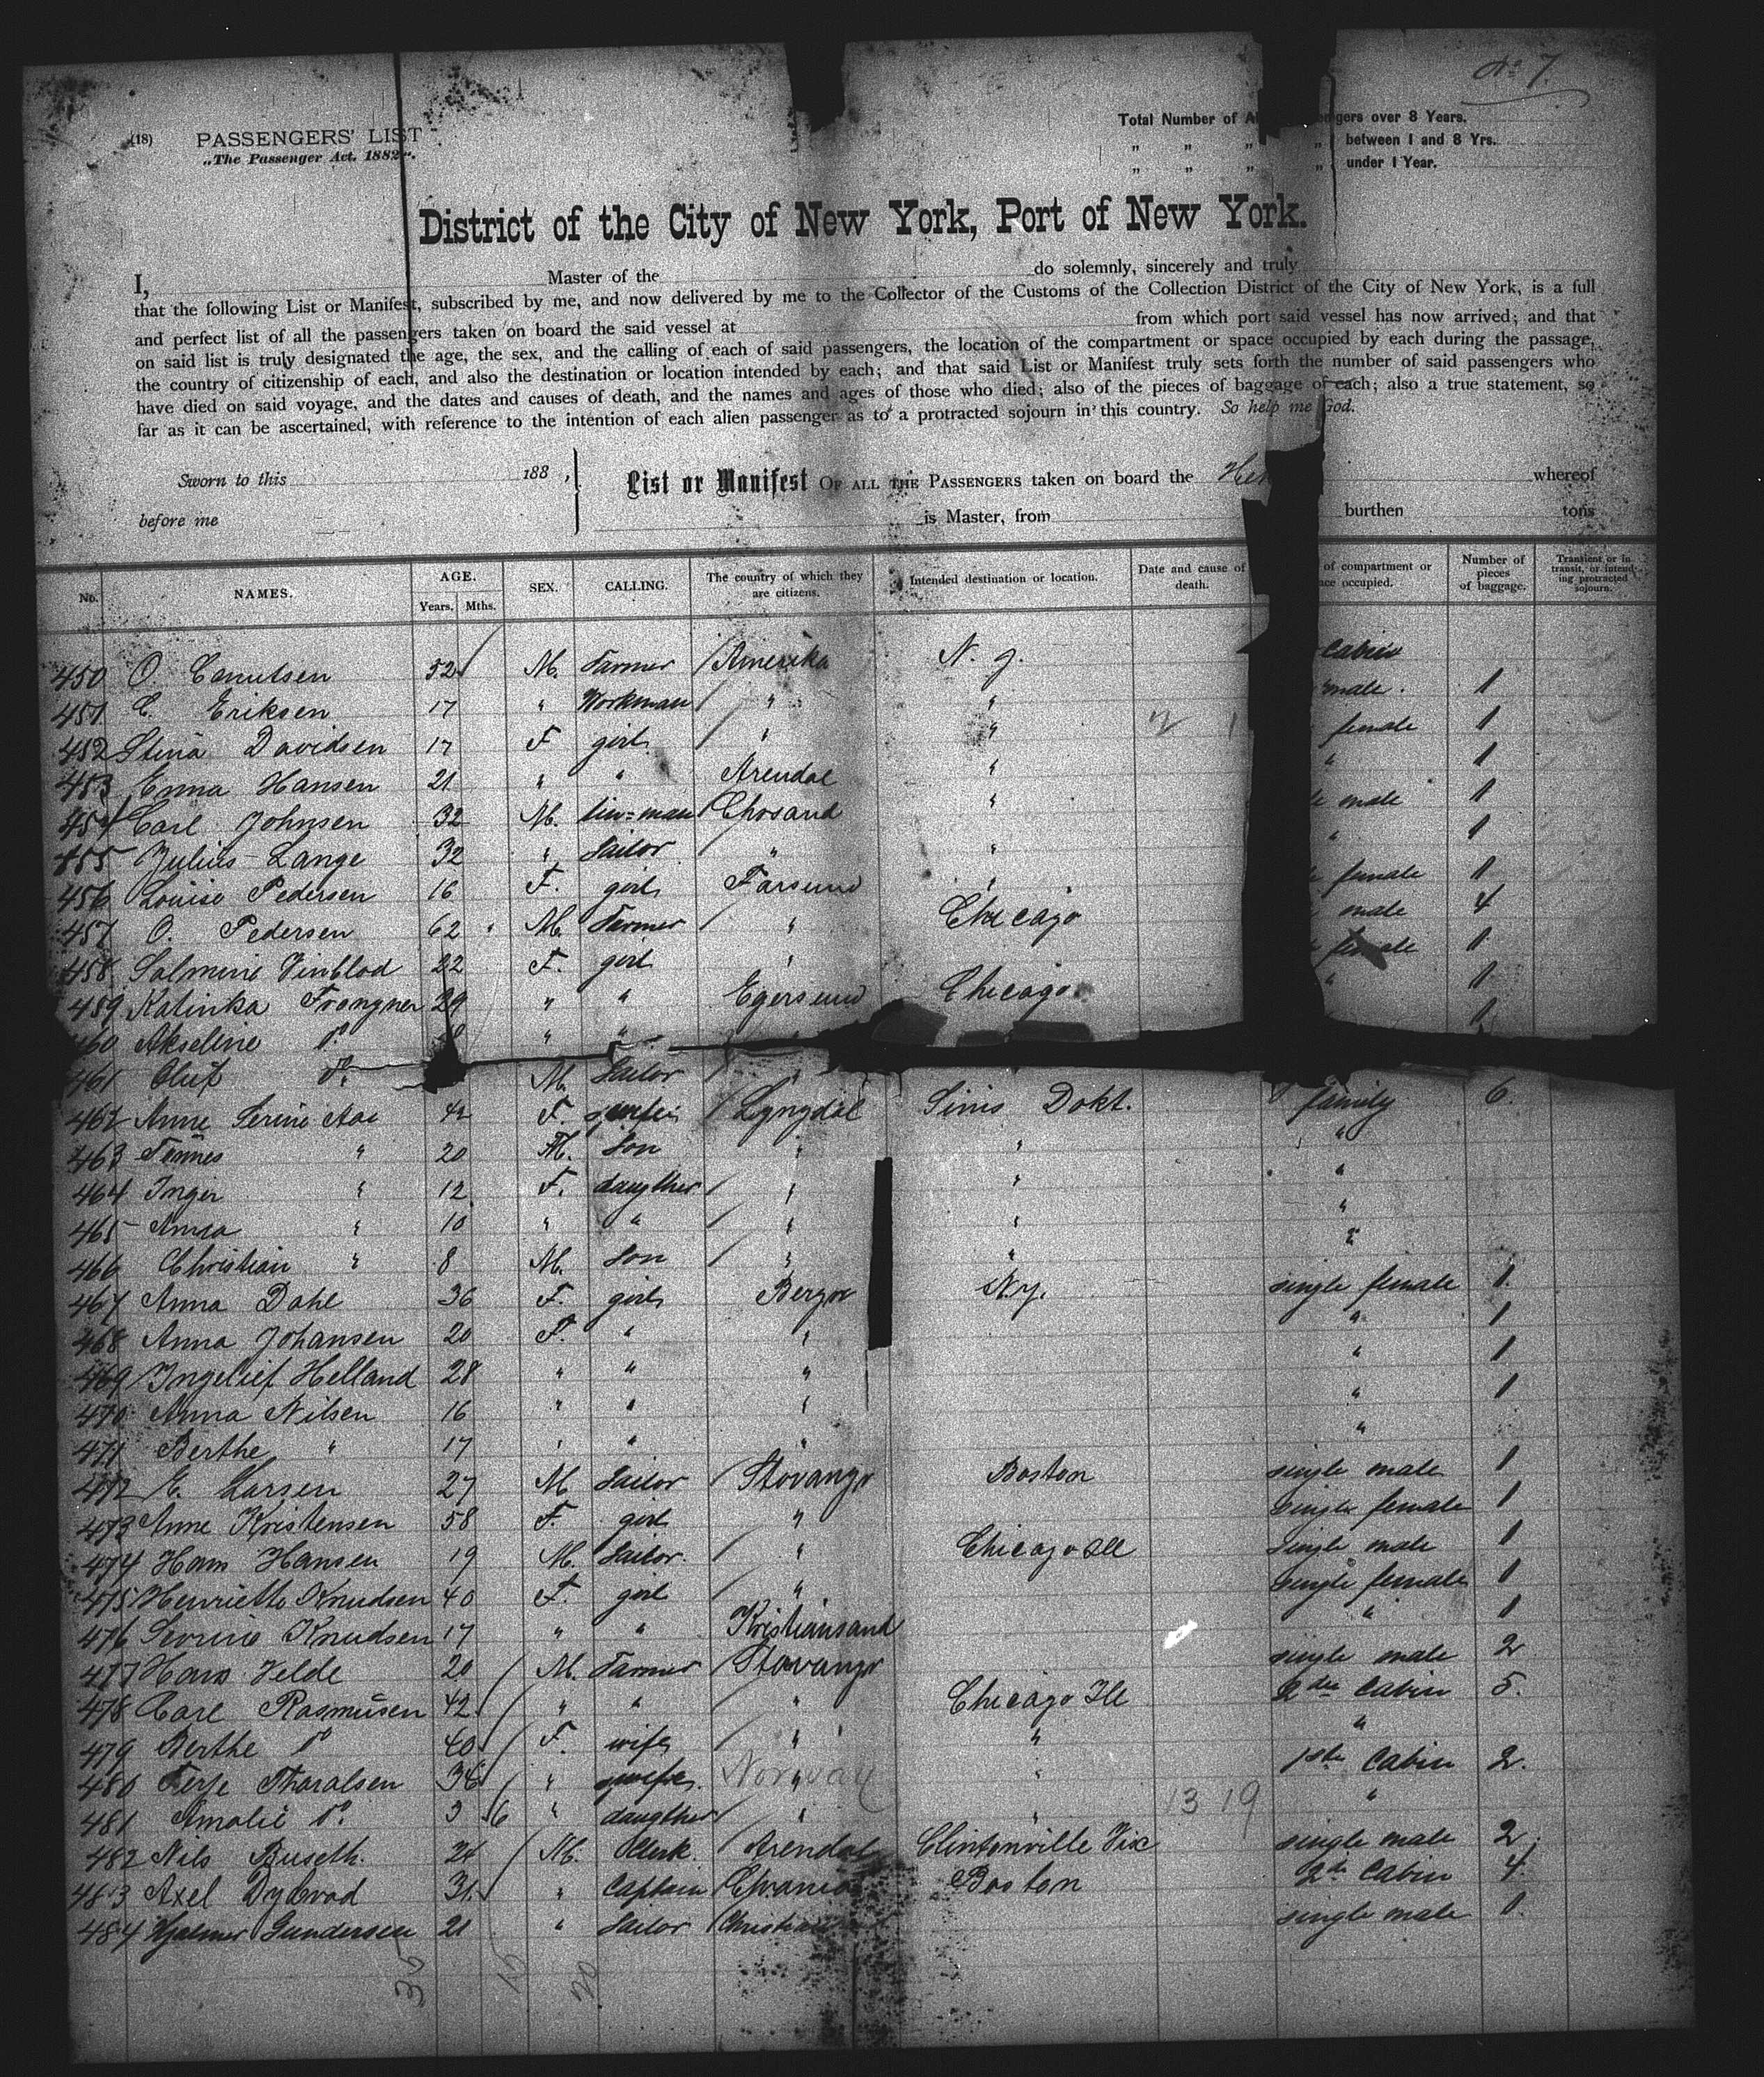 No 7.
(18) PASSENGERS' LIST
„The Passenger Act. 1882".
Total Number of A ngers over 8 Years.
„ „ „ „ between 1 and 8 Yrs.
„ „ „ „ under 1 Year.
District of the City of New York, Port of New York.
I, Master of the do solemnly, sincerely and truly
that the following List or Manifest, subscribed by me, and now delivered by me to the Collector of the Customs of the Collection District of the City of New York, is a full
and perfect list of all the passengers taken on board the said vessel at from which port said vessel has now arrived; and that
on said list is truly designated the age, the sex, and the calling of each of said passengers, the location of the compartment or space occupied by each during the passage,
the country of citizenship of each, and also the destination or location intended by each; and that said List or Manifest truly sets forth the number of said passengers who
have died on said voyage, and the dates and causes of death, and the names and ages of those who died; also of the pieces of baggage of each; also a true statement, so
far as it can be ascertained, with reference to the intention of each alien passenger as to a protracted sojourn in this country. So help me God.
Sworn to this 188 , List or Manifest OF ALL THE PASSENGERS taken on board the whereof
before me is Master, from burthen tons
No. NAMES. AGE. Years. Mths. SEX. CALLING. The country of which they are citizens. Intended destination or location. Date and cause of death. of compartment or ace occupied. Number of pieces of baggage. Transient or in transit, or intending protracted sojourn.
450 O. Canutsen 52 M. Farmer Amerika N. y. cabin
451 C. Eriksen 17 " Workman " " male. 1
452 Stina Davidsen 17 F girl " " female 1
453 Emma Hansen 21 " " Arendal " " 1
454 Carl Johnsen 32 M. Chrsand " male 1
455 Julius Lange 32 " Sailor " " " 1
456 Louise Pedersen 16 F. girl Farsund " female 1
457 O. Pedersen 62 M. Farmer " Chicago male 4
458 Salmine Vinblod 22 F. girl " female 1
459 Katinka Frongner 29 " " Egersund Chicago " 1
460 Akseline do " " " 1
461 Oluf do M. Sailor "
462 Anne Serine Aae 42 F. wife Lyngdal Sinis Dokt. family 6.
463 Tönnes " 20 M. Son " " "
464 Inger " 12 F. daugther " " "
465 Anna " 10 " " " " "
466 Christian " 8 M. Son " " "
467 Anna Dahl 36 F. girl Bergen N.y. single female 1
468 Anna Johansen 20 F. " " " 1
469 Ingelief Helland 28 " " " " 1
470 Anna Nilsen 16 " " " " 1
471 Berthe " 17 " " " "
472 E. Larsen 27 M Sailor Stavanger Boston single male 1
473 Anne Kristensen 58 F. girl " single female 1
474 Hans Hansen 19 M. Sailor " Chicago Ill single male 1
475 Henriette Knudsen 40 F. girl " single female 1
476 Severine Knudsen 17 " " Kristiansand " 1
477 Hans Velde 20 M. Farmer Stavanger single male 2
478 Carl Rasmusen 42 " " " Chicago Ill 2de Cabin 5.
479 Berthe do 40 F. wife " " "
480 Terje Tharalsen 36 " wife. Norway " 1ste Cabin 2.
481 Amalie do 3 6 " daugther " " 13 19 "
482 Nils Buseth. 24 M. Clerk. Arendal Clintonville Vis single male 2
483 Axel Dybvad 31 " Captain Boston 2de Cabin 4.
484 Hjalmer Gundersen 21 " Sailor single male 1.
35 15 20